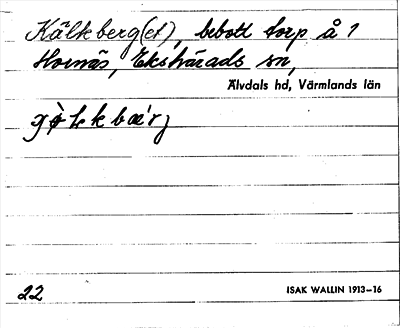 Kälkberg(et), bebott torp å 1
Hornäs, Ekshärads sn,
Älvdals hd, Värmlands län
22
ISAK WALLIN 1913–16